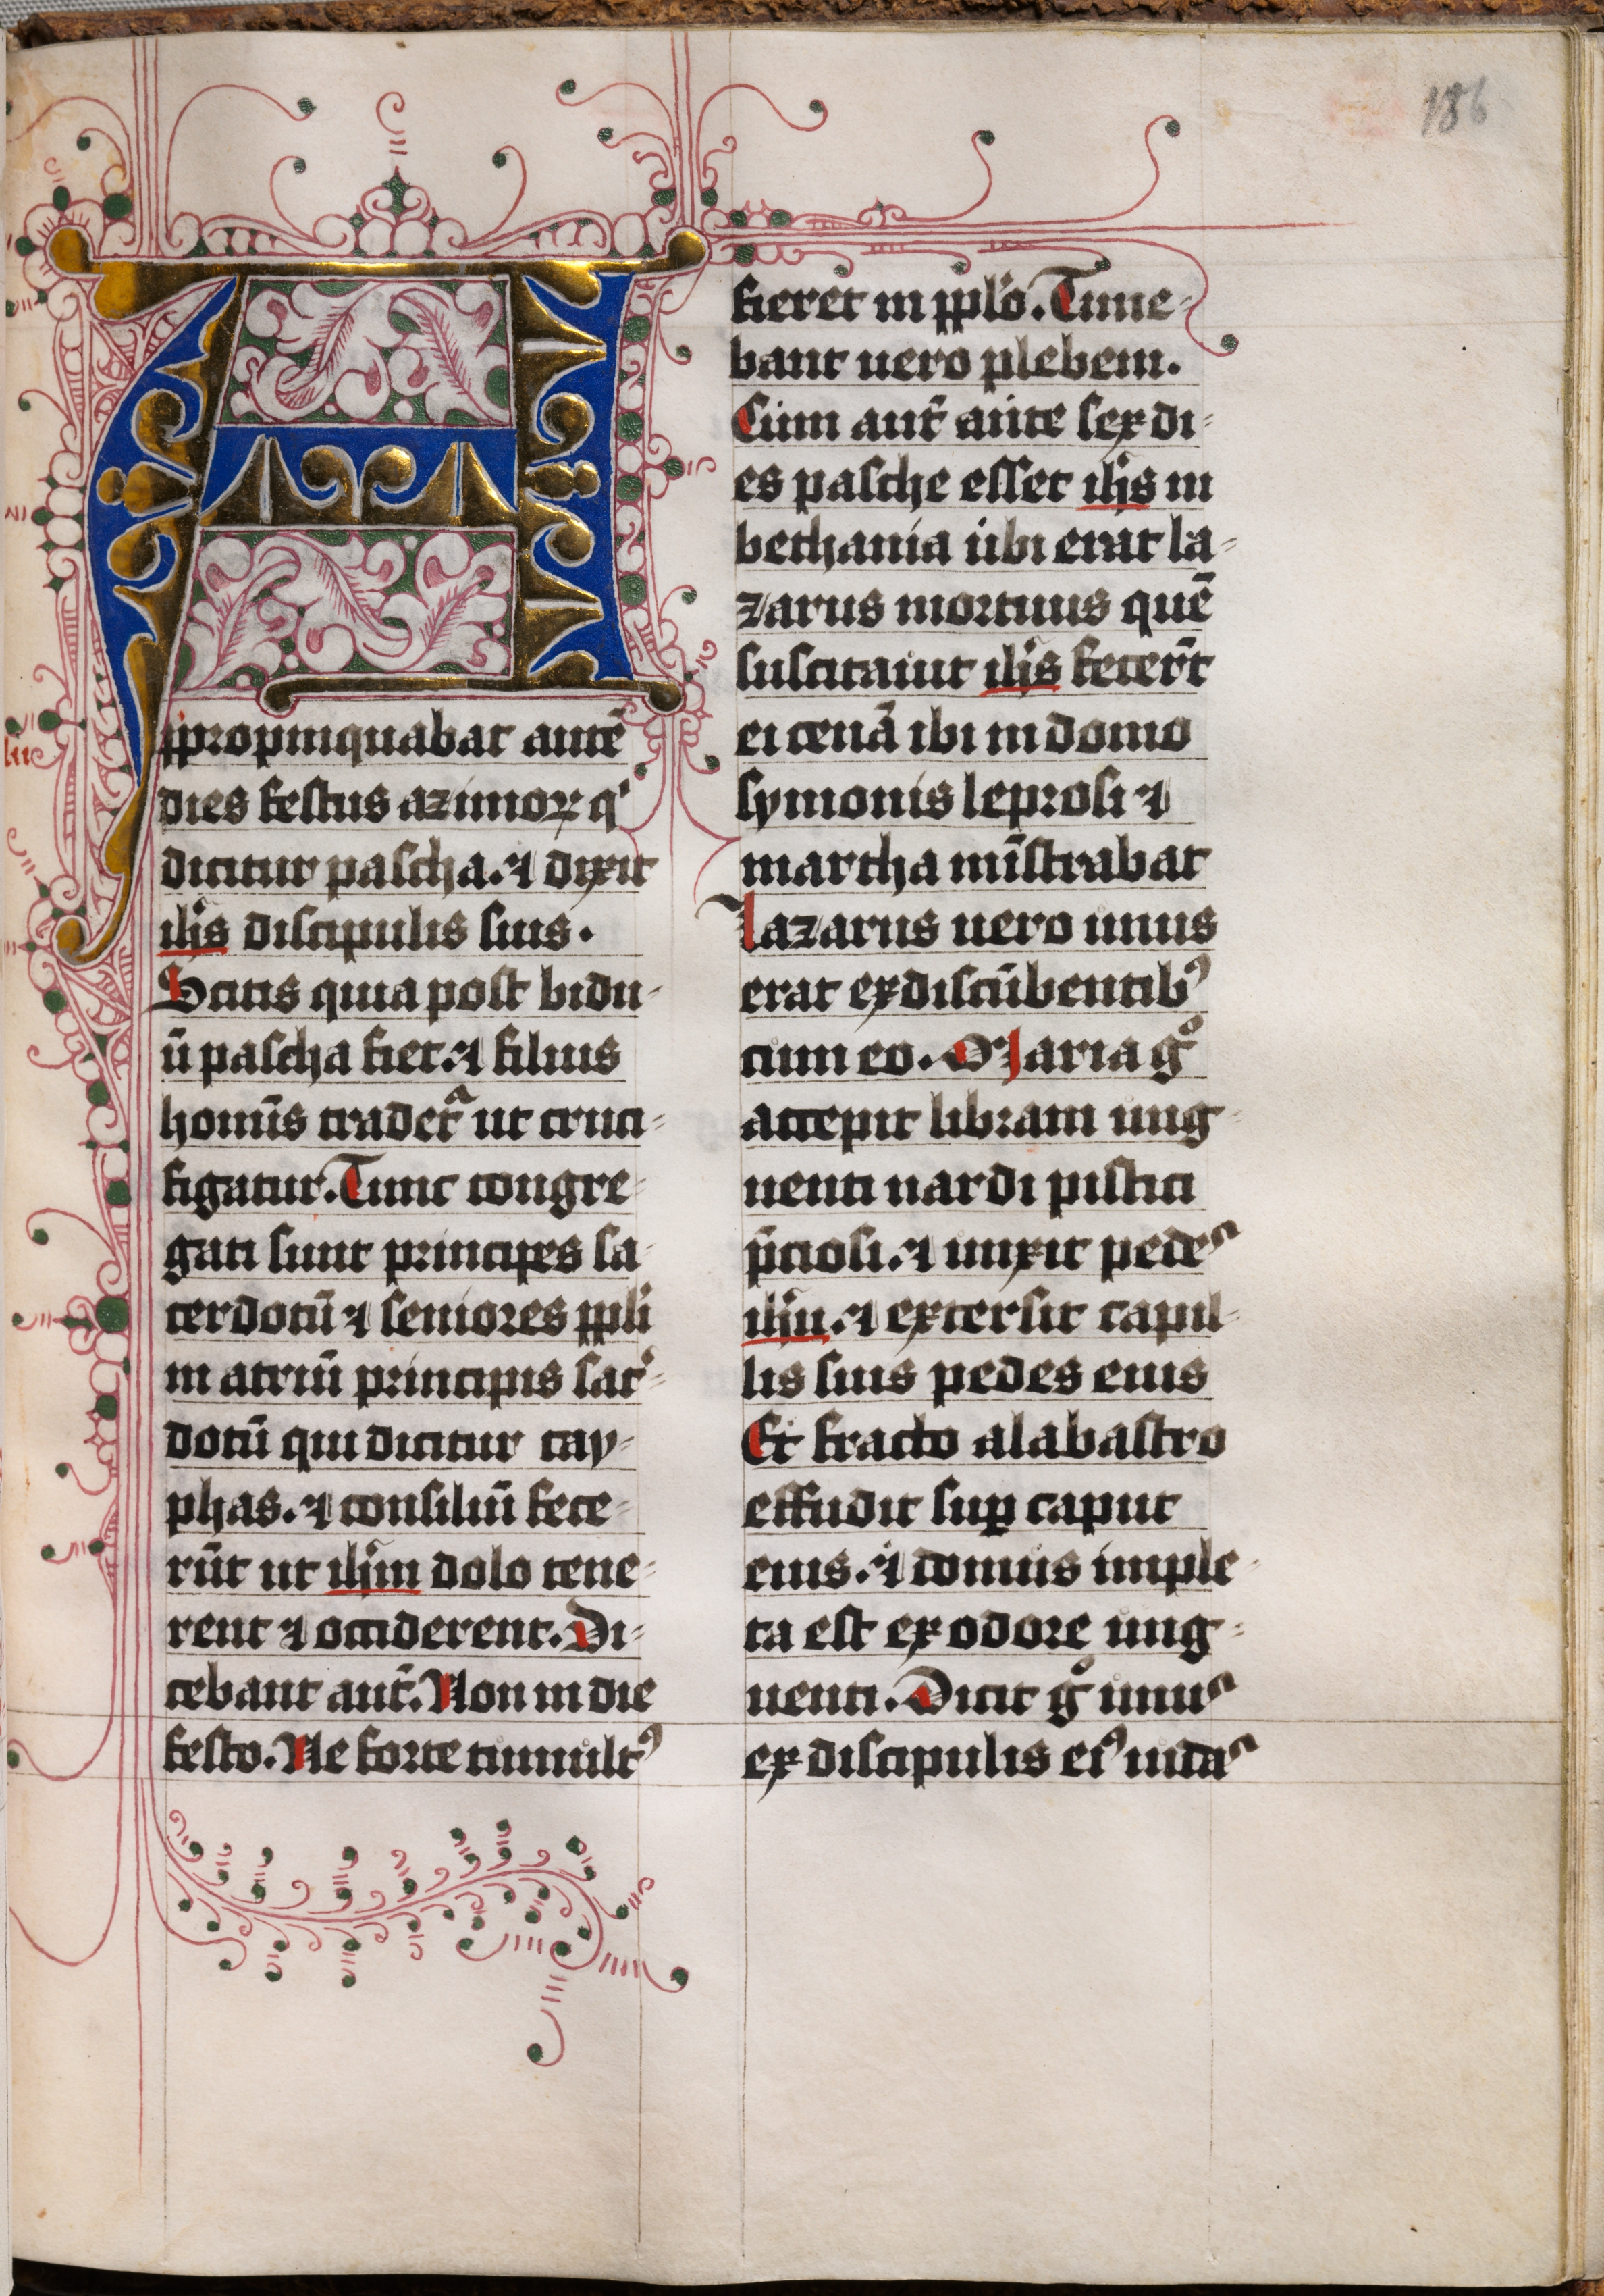 186
A
ppropinquabat autē
dies festus azimoꝝ qͥ
dicitur pascha. ⁊ dixit
ihs discipulis suis.
Scitis quia post bidu-
ū pascha fiet. ⁊ filius
homīs tradetᷓ ut cruci-
figatur. Tunc congre-
gati sunt principes sa-
cerdotū ⁊ seniores ppli
in atriū principis sac̄-
dotū qui dicitur cay-
phas. ⁊ consiliū fece-
rūt ut ihm dolo tene-
rent ⁊ occiderent. Di-
cebant aut̄. Non in die
festo. Ne forte tumultꝰ
fieret in pplo. Time-
bant uero plebem.
Cum aut̄ ante sex di-
es pasche esset ihs in
bethania ubi erat la-
zarus mortuus quē
suscitauit ihs fecer̄t
ei cenā ibi in domo
symonis leprosi ⁊
martha mīstrabat
Lazarus uero unus
erat ex discūbentibꝰ
cum eo. Maria gͦ
accepit libram ung-
uenti nardi pistici
p̄ciosi. ⁊ unxit pedes
ihu. ⁊ extersit capil-
lis suis pedes eius
Et fracto alabastro
effudit suꝑ caput
eius. ⁊ domus imple-
ta est ex odore ung-
uenti. Dicit gͦ unus
ex discipulis eiꝰ iudas